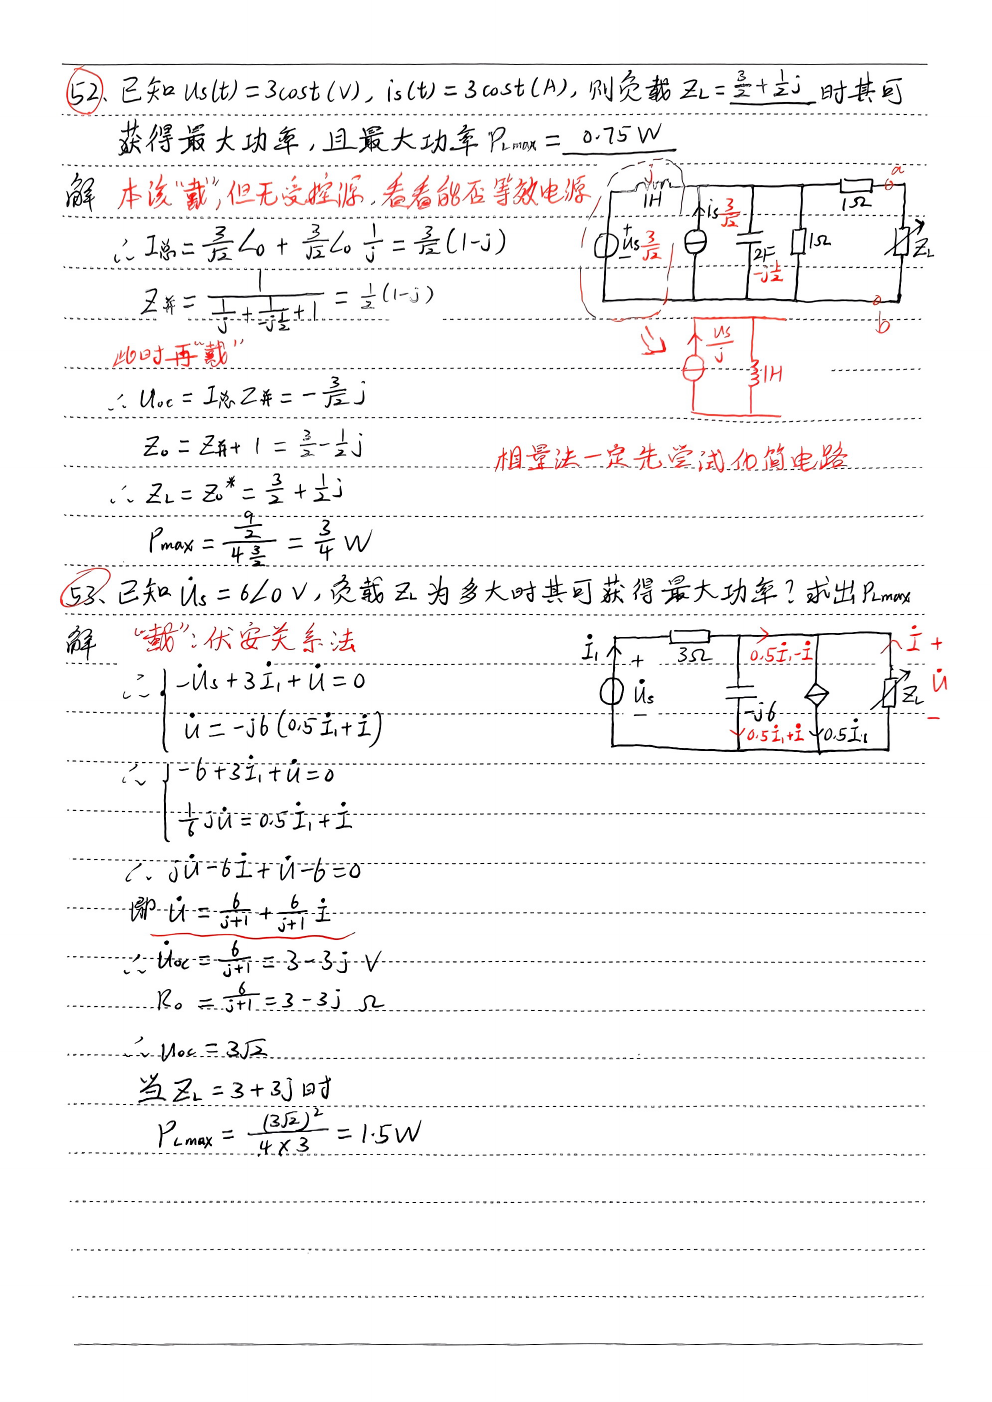 52、已知 us(t)=3cost(V), is(t)=3cost(A), 则负载 ZL= 3/2+1/2j 时其可
获得最大功率, 且最大功率 PLmax= 0.75W
解 本该"戴", 但无受控源, 看看能否等效电源
∴ I总=3/√2∠0 + 3/√2∠0 1/j = 3/√2(1-j)
Z并= 1/(1/j + 1/(-j1/2) + 1) = 1/2(1-j)
此时再"戴"
∴ Uoc = I总Z并 = -3/√2 j
Z0 = Z并+1 = 3/2-1/2j
∴ ZL=Z0* = 3/2+1/2j
Pmax = (9/2)/(4 3/2) = 3/4 W
j
1H
a
1Ω
is 3/√2
+
U̇s 3/√2
-
2F
-j1/2
1Ω
ZL
b
Us/j
1H
相量法一定先尝试化简电路
53、已知 U̇s=6∠0 V, 负载 ZL 为多大时其可获得最大功率? 求出PLmax
解 "戴": 伏安关系法
∴ { -U̇s+3İ1+U̇=0
U̇=-j6(0.5İ1+İ)
∴ { -6+3İ1+U̇=0
1/6 jU̇=0.5İ1+İ
∴ jU̇-6İ+U̇-6=0
即 U̇= 6/(j+1) + 6/(j+1) İ
∴ U̇oc= 6/(j+1) = 3-3j V
R0 = 6/(j+1) =3-3j Ω
∴ Uoc=3√2
当 ZL=3+3j时
PLmax = (3√2)²/(4×3) = 1.5W
İ1
3Ω
0.5İ1-İ
İ +
+
U̇s
-
-j6
0.5İ1+İ
0.5İ1
ZL
U̇
-